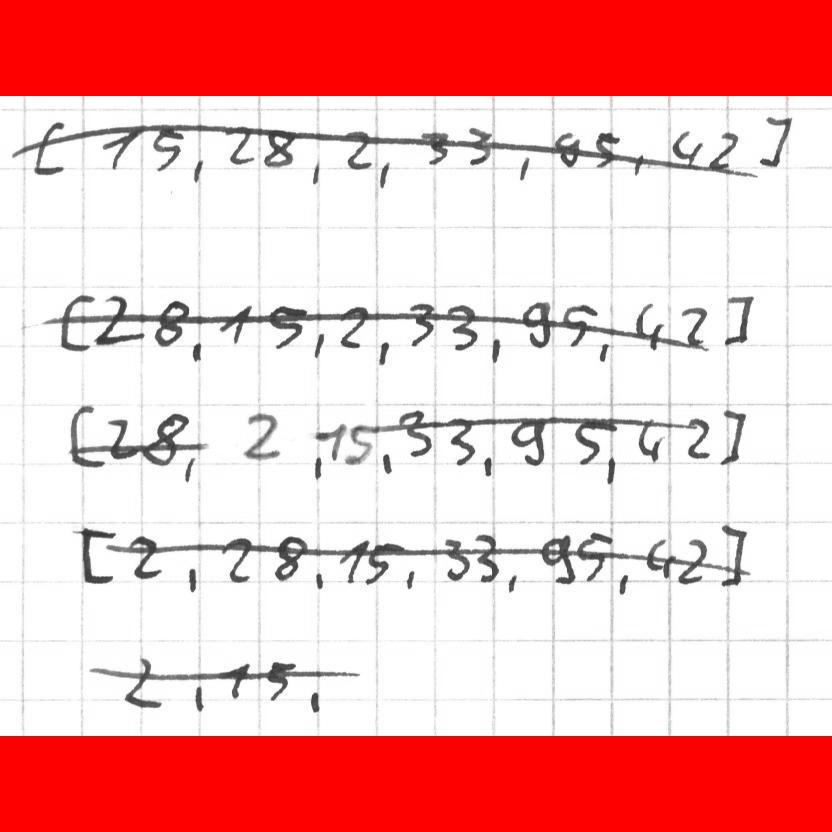 [15, 28, 2, 33, 95, 42]
[28, 15, 2, 33, 95, 42]
[28, 2, 15, 33, 95, 42]
[2, 28, 15, 33, 95, 42]
2, 15,